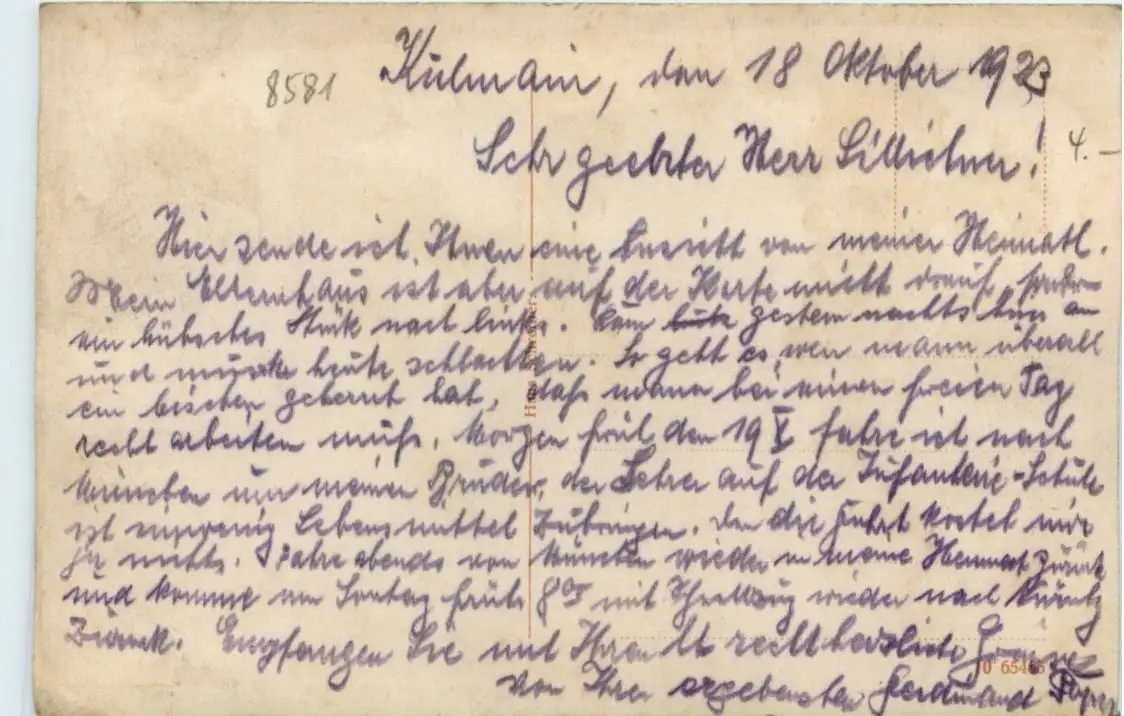 8581
Kulmain, den 18 Oktober 1923
Sehr geehrter Herr
4.–
Hier sende ich Ihnen eine Ansicht von meiner Heimath.
Mein Elternhaus ist aber auf der Karte nicht drauf, sondern
ein hübsches Stük nach links. Kam gestern nachts hier an
und musste heute schlachten. So geht es, wen mann überall
ein bischen gelernt hat, daß mann bei einen freien Tag
recht arbeiten muß. Morgen früh den 19 X fahre ich nach
München um meinen Bruder, der Lehrer auf der Infanterie-Schule
ist ein wenig Lebensmittel zubringen. den die Fahrt kostet mir
ja nichts. Fahre abends von München wieder in meine Heimat zurück
und komme am Sontag früh 8 mit Schnellzug wieder nach
zurück. Empfangen Sie mit recht herzliche Grüsse
von Ihren ergebensten Ferdinand
Hans
0 65465